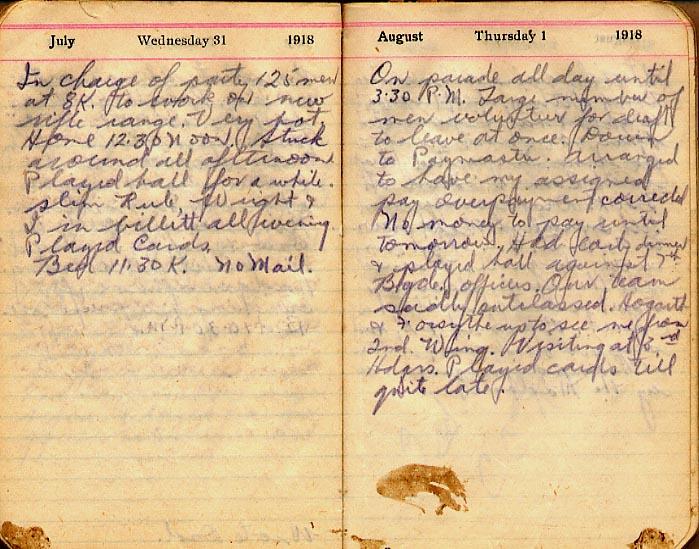 July Wednesday 31 1918
In charge of party 125 men
at 8K. to work on new
rifle range. Very hot
Home 12.30 Noon. Stuck
around all afternoon
Played ball for a while.
Slim Rule, Wright &
I in billett all evening
Played Cards.
Bed 11.30 K. No Mail.
August Thursday 1 1918
On parade all day until
3.30 P.M. Large number of
men volunteer for draft
to leave at once. Down
to Paymaster. arranged
to have my assigned
pay overpayment corrected
No money to pay until
tomorrow. Had early dinner
& played ball against 7th
Bgde. officers. Our team
sadly outclassed. Hogarth
& Forsythe up to see me from
2nd. Wing. Visiting at 3rd
Hdqrs. Played cards till
quite late